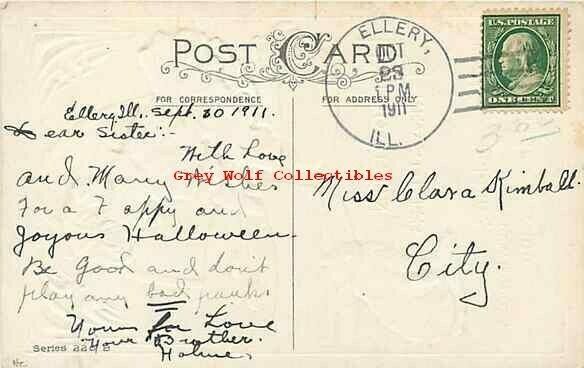 POST CARD
FOR CORRESPONDENCE
FOR ADDRESS ONLY
ELLERY,
OCT
23
1 PM
1911
ILL.
U.S. POSTAGE
ONE CENT
Ellery Ill, Sept. 30 1911.
Dear Sister:-
With Love
and Many Wishes
For a Happy and
Joyous Halloween
Be Good and don't
play any bad pranks
Yours In Love
Your Brother.
Miss Clara Kimball.
City.
Series 226 B
Grey Wolf Collectibles